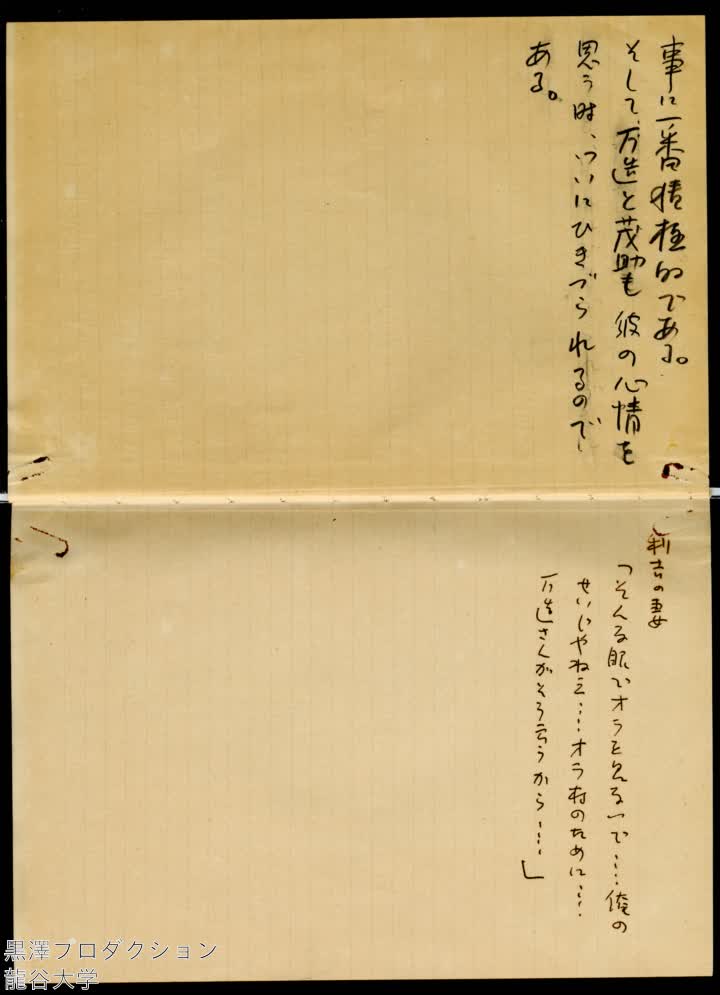 事に一番積極的である。
そして、万造と茂助も彼の心情を
思う時、ついにひきづられるので
ある。
利吉の妻
「そんな眼でオラを見るなで……俺の
せいじゃねえ……オラ村のために……
万造さんがそう云うから……」
黒澤プロダクション
龍谷大学